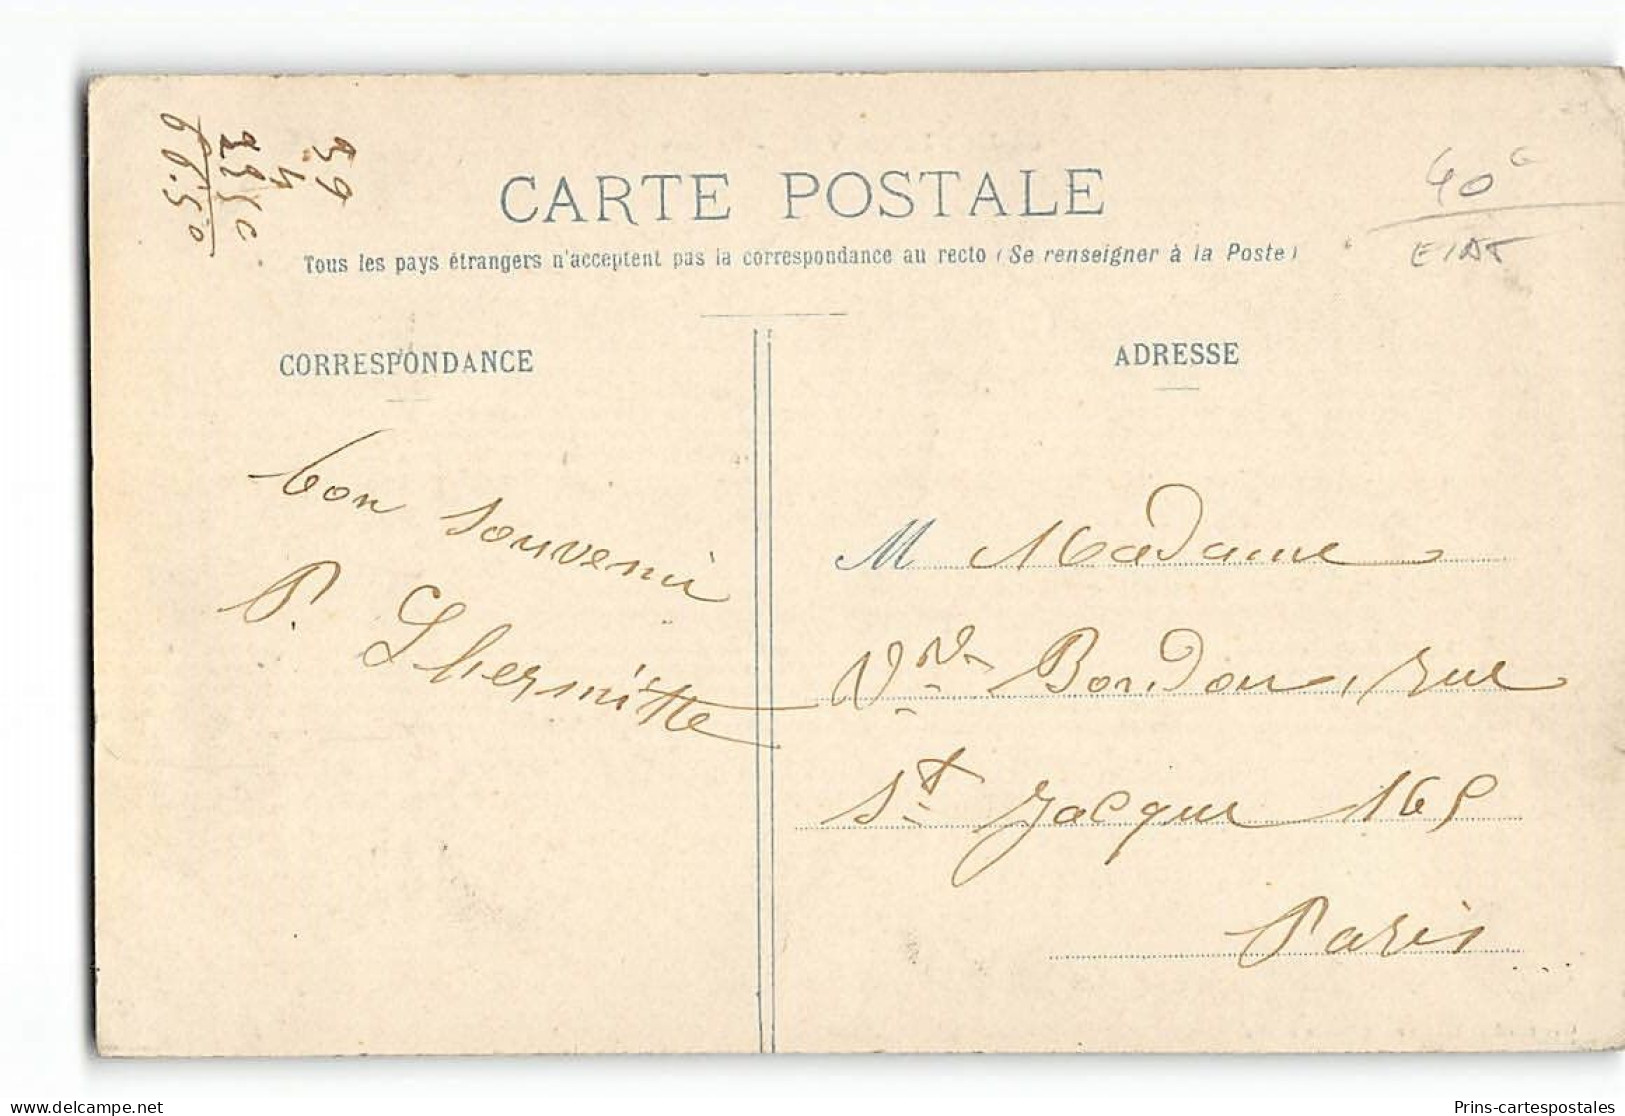 39
4
66.50
CARTE POSTALE
40
Tous les pays étrangers n'acceptent pas la correspondance au recto (Se renseigner à la Poste)
CORRESPONDANCE
ADRESSE
bon souvenir
P. Lhermitte
M Madame
Vve Bourdon, rue
St Jacques 165
Paris
www.delcampe.net
Prins-cartespostales